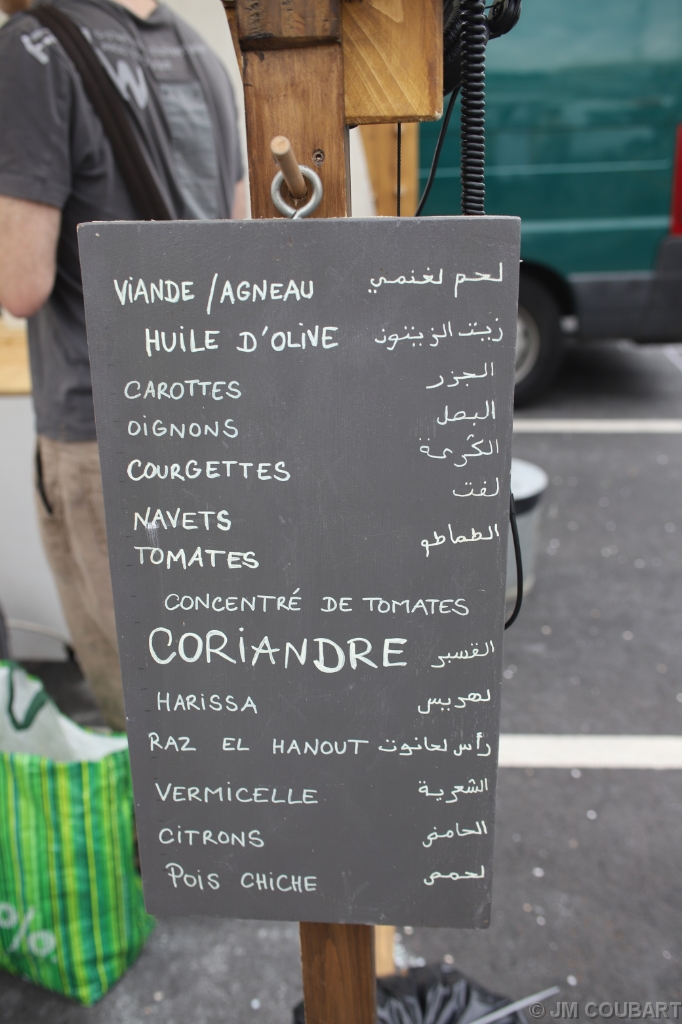 VIANDE / AGNEAU لحم لغنمي
HUILE D'OLIVE زيت الزيتون
CAROTTES الجزر
OIGNONS البصل
COURGETTES الكرعة
NAVETS لفت
TOMATES الطماطو
CONCENTRÉ DE TOMATES
CORIANDRE القسبر
HARISSA لهريس
RAZ EL HANOUT رأس لحانوت
VERMICELLE الشعرية
CITRONS الحامض
POIS CHICHE لحمص
%
© JM COUBART